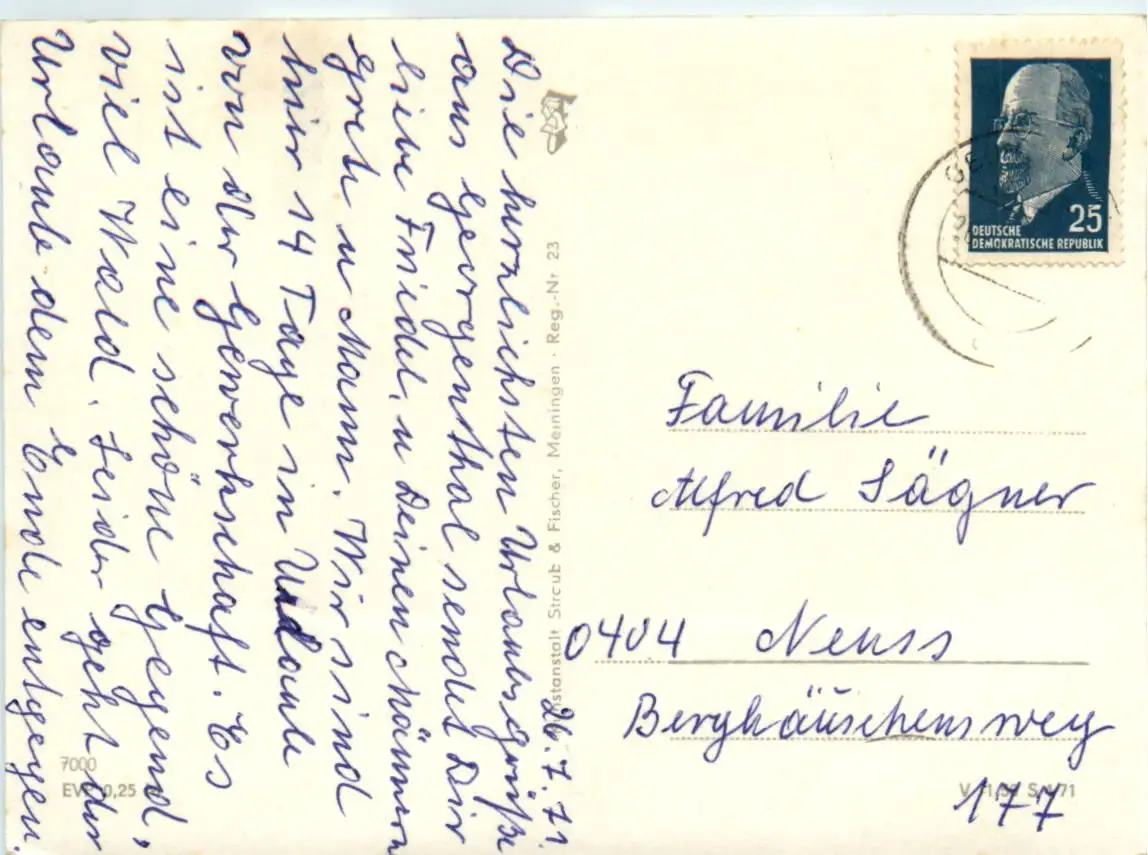 26. 7. 71.
Die herzlichsten Urlaubsgrüße
aus Georgenthal sendet Dir
liebe Friedel, u Deinen Männern
Grete u Mann. Wir sind
hier 14 Tage in Urlaub
von der Gewerkschaft. Es
ist eine schöne Gegend,
viel Wald. Leider geht der
Urlaub dem Ende entgegen.
Straub & Fischer, Meiningen · Reg.-Nr 23
25
DEUTSCHE
DEMOKRATISCHE REPUBLIK
Familie
Alfred Sägner
0404 Neuss
Berghäuschensweg
177
7000
EVP 0,25